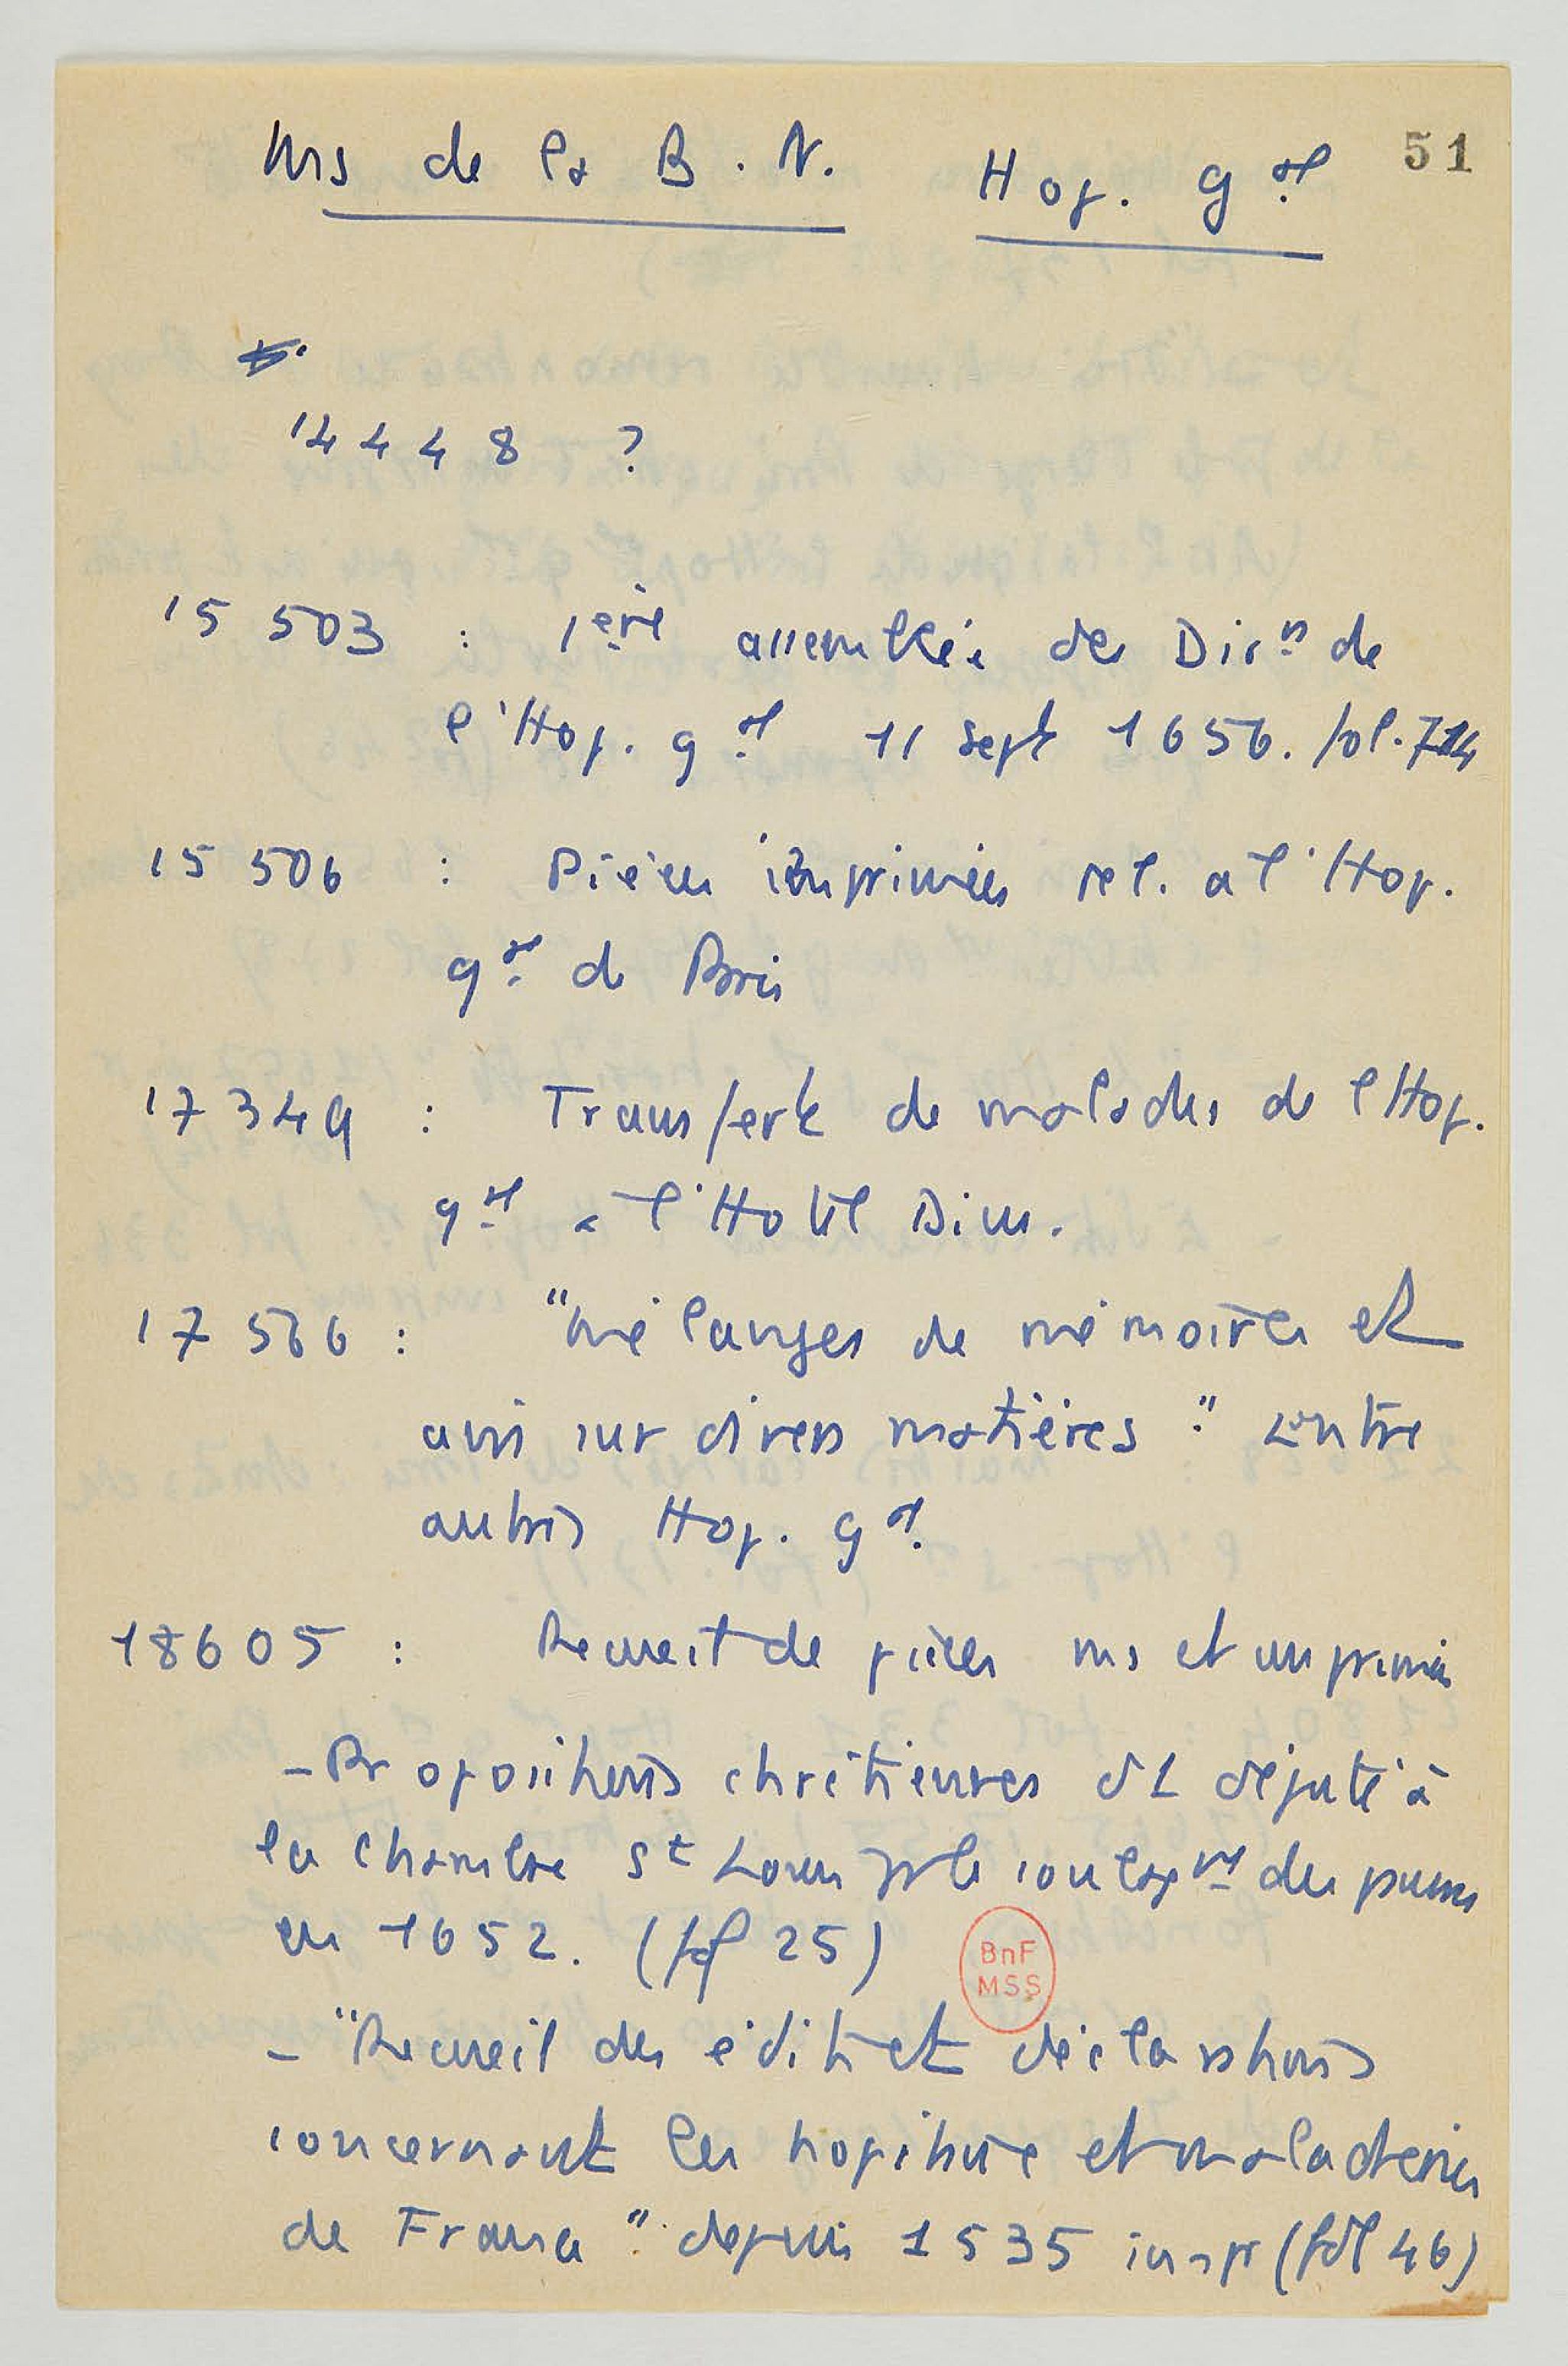 Mss de la B.N. Hop. gal 51
14448 ?
15 503 : 1ère assemblée des Dirrs de
l'Hop. gal 11 sept 1656. fol. 714
15 506 : Pièces imprimées rel. a l'Hop.
gal de Paris
17349 : Transfert de malades de l'Hop.
gal a l'Hotel Dieu.
17 566 : "mélanges de mémoires et
avis sur divers matières". Entre
autres Hop. gal.
18605 : Recueil de pièces ms et imprimés
- Propositions chrétiennes d1 député à
la chambre St Louis pr le soulagnt des pauvres
en 1652. (fol 25)
BnF
MSS
- "Recueil des édits et déclarations
concernant les hopitaux et maladreries
de France". depuis 1535 impr (fol 46)